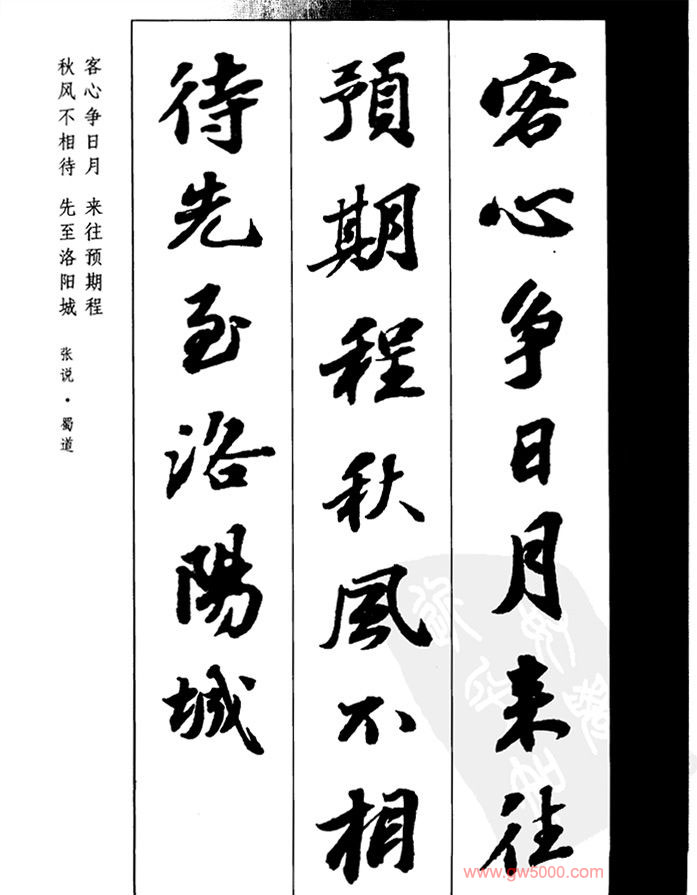 客心争日月来往
預期程秋風不相
待先至洛陽城
客心争日月 来往预期程
秋风不相待 先至洛阳城
张说·蜀道
www.gw5000.com